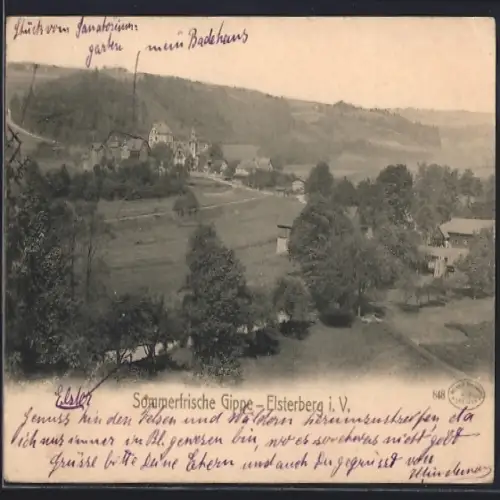 Stück vom Sanatorium-
garten, mein Badehaus
Elster
Sommerfrische Gippe - Elsterberg i. V.
848
Genuss in den Felsen und Wäldern herumzustreifen, da
ich nur immer in Bl. gewesen bin, wo es so etwas nicht gibt
Grüsse bitte deine Eltern und auch Du gegrüsst von